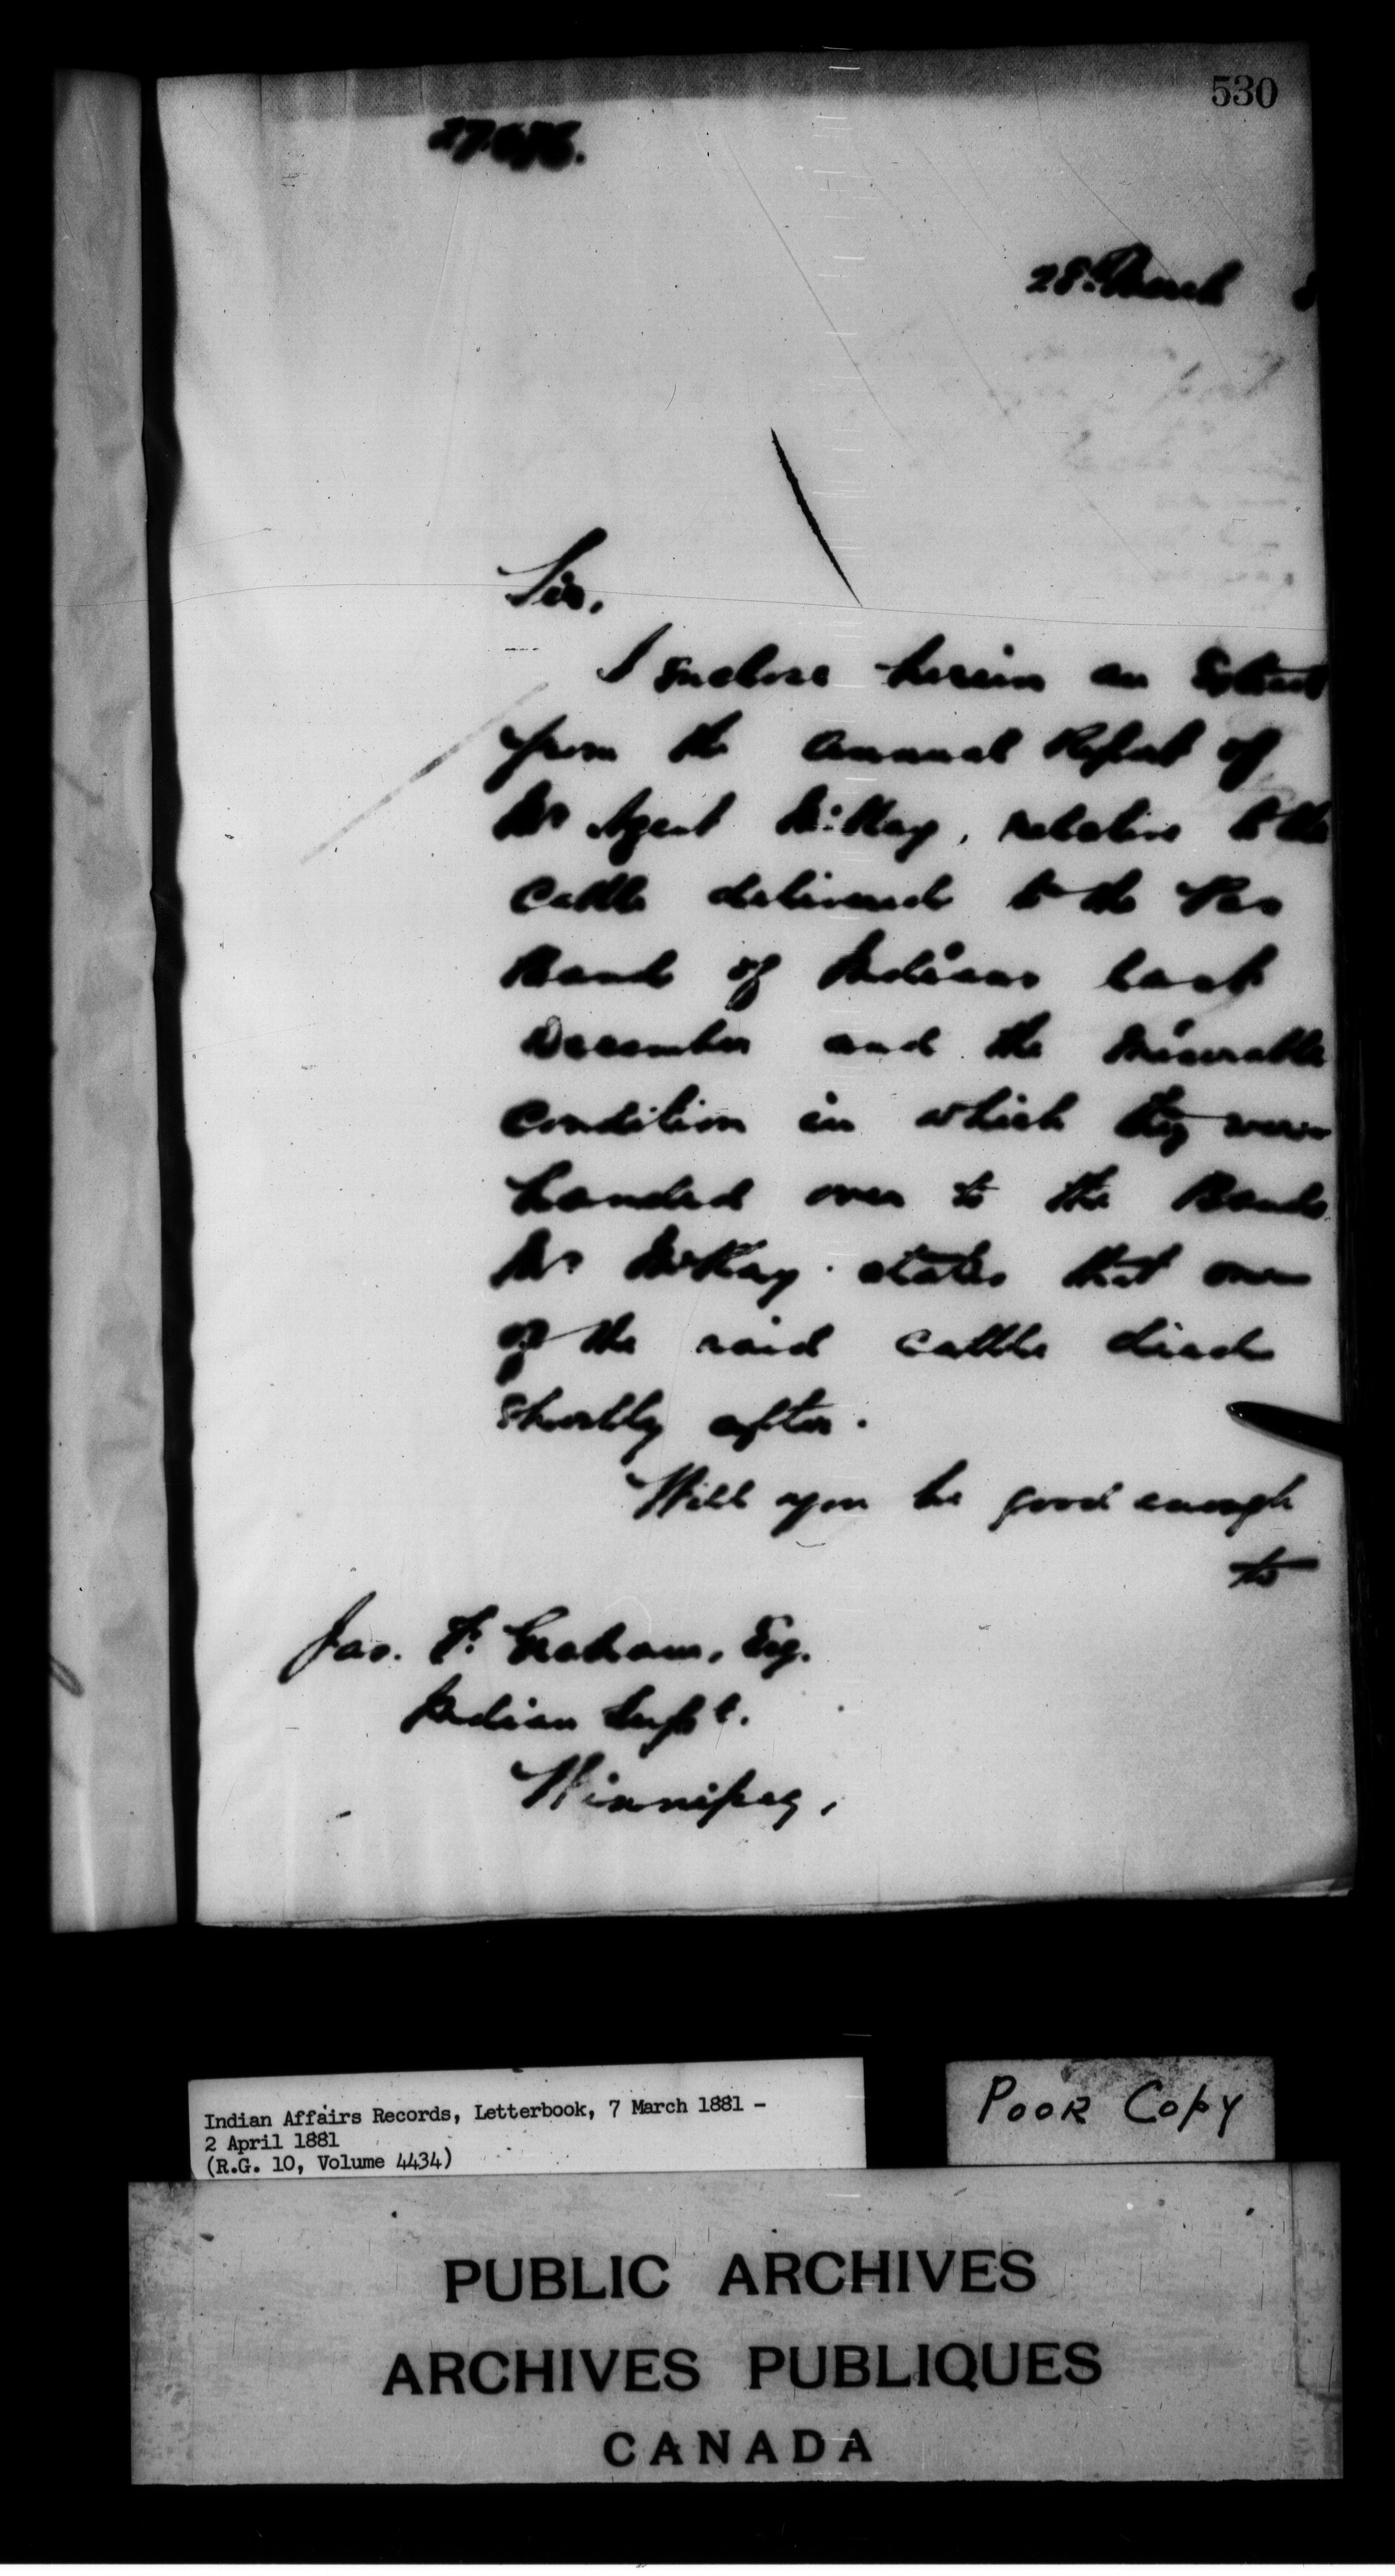 530
28th March 8
Sir,
I enclose herein an Extract
from the Annual Report of
Mr Agent McKay, relative to the
Cattle delivered to the Pas
Band of Indians last
December and the miserable
condition in which they were
handed over to the Band.
Mr McKay states that one
of the said cattle died
shortly after.
Will you be good enough
to
Jas. F. Graham, Esq.
Indian Supt.
Winnipeg,
Indian Affairs Records, Letterbook, 7 March 1881 -
2 April 1881
(R.G. 10, Volume 4434)
POOR COPY
PUBLIC ARCHIVES
ARCHIVES PUBLIQUES
CANADA